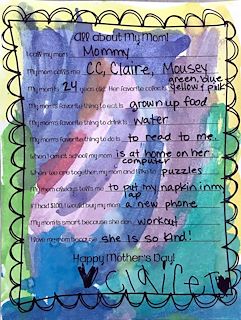 All About My Mom!
I call my mom: Mommy
My mom calls me CC, Claire, Mousey
My mom is 24 years old. Her favorite color is green, blue, yellow & pink
My mom's favorite thing to eat is grown up food
My mom's favorite thing to drink is water
My mom's favorite thing to do is to read to me
When I am at school my mom is at home on her computer
When we are together my mom and I like to puzzles
My mom always tells me to put my napkin in my lap
If I had $100, I would buy my mom a new phone
My mom is smart because she can workout
I love my mom because she is so kind!
Happy Mother's Day!